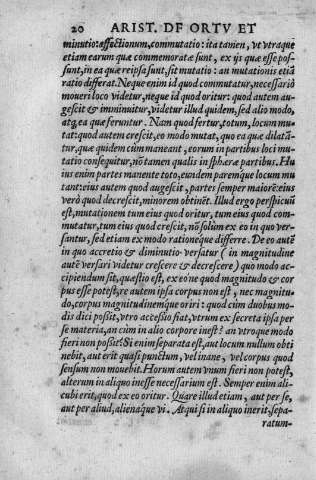 20 ARIST. DE ORTV ET
minutio: affectionum, commutatio: ita tamen, vt vtraque
etiam earum quæ commemoratæ sunt, ex ijs quæ esse pos-
sunt, in ea quæ reipsa sunt, sit mutatio: an mutationis etiã
ratio differat. Neque enim id quod commutatur, necessariò
moueri loco videtur, neque id quod oritur: quod autem au-
gescit & imminuitur, videtur illud quidem, sed alio modo,
atq, ea quæ feruntur. Nam quod fertur, totum, locum mu-
tat: quod autem crescit, eo modo mutat, quo ea quæ dilatã-
tur, quæ quidem cùm maneant, eorum in partibus loci mu-
tatio consequitur, nõ tamen qualis in sphæræ partibus. Hu
ius enim partes manente toto, eundem parémque locum mu
tant: eius autem quod augescit, partes semper maiorē: eius
verò quod decrescit, minorem obtinēt. Illud ergo perspicuū
est, mutationem tum eius quod oritur, tum eius quod com-
mutatur, tum eius quod crescit, nõ solùm ex eo in quo ver-
santur, sed etiam ex modo rationéque differre. De eo autē
in quo accretio & diminutio versatur ( in magnitudine
autē versari videtur crescere & decrescere) quo modo ac-
cipiendum sit, quæstio est, ex eo ne quod magnitudo & cor
pus esse potest, re autem ipsa corpus non est, nec magnitu-
do, corpus magnitudinémque oriri: quod cùm duobus mo-
dis dici possit, vtro accessio fiat, vtrum ex secreta ipsa per
se materia, an cùm in alio corpore inest? an vtroque modo
fieri non possit? Si enim separata est, aut locum nullum obti
nebit, aut erit quasi punctum, vel inane, vel corpus quod
sensum non mouebit. Horum autem vnum fieri non potest,
alterum in aliquo inesse necessarium est. Semper enim ali-
cubi erit, quod ex eo oritur. Quare illud etiam, aut per se,
aut per aliud, alienáque vi. Atqui si in aliquo inerit, sepa-
ratum-